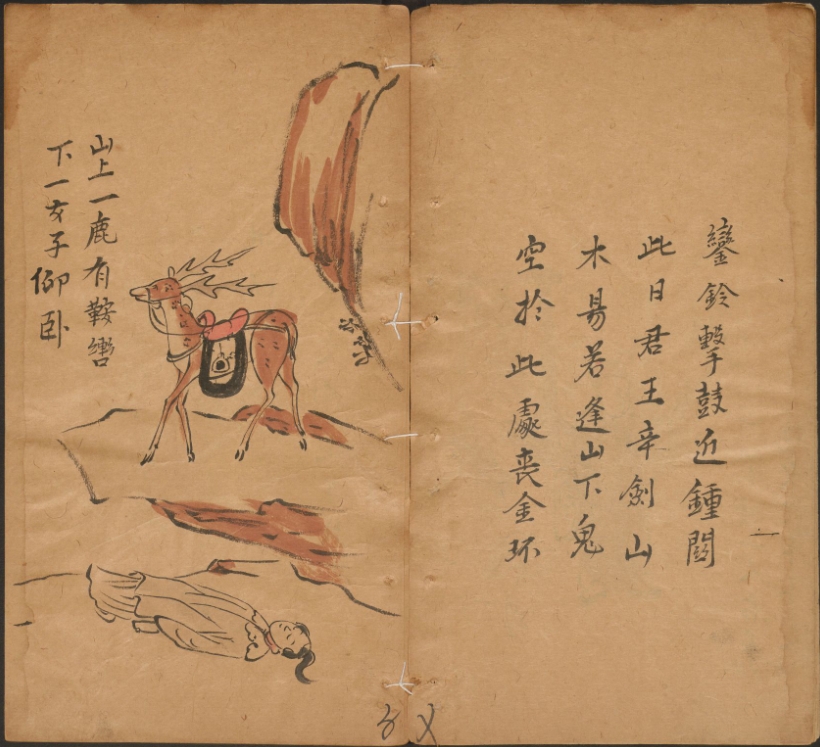 鑾鈴擊鼓近鍾関
此日君王幸劍山
木易若逢山下鬼
空於此處喪金环
山上一鹿有鞍轡
下一女子仰卧